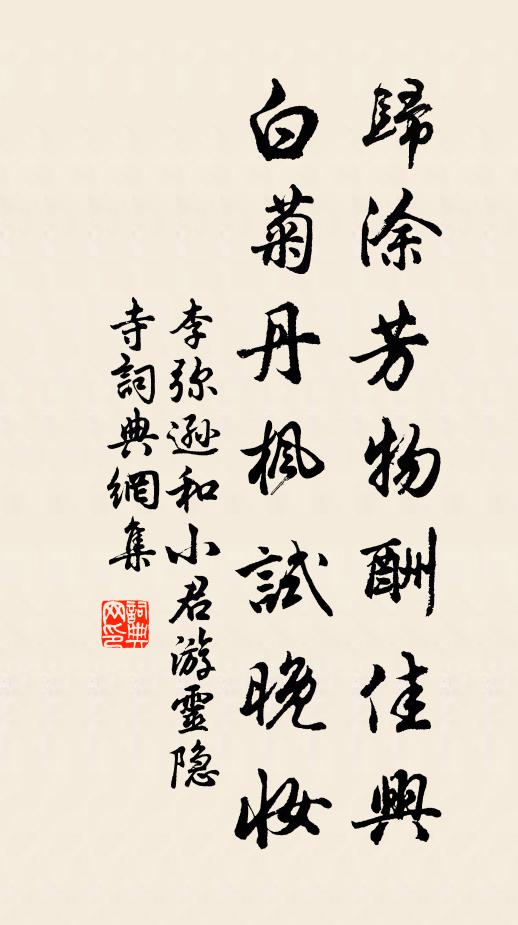 歸涂芳物酬佳興
白菊丹楓試晚妝
李弥遜和小君游靈隐
寺詞典網集
詞典
网印